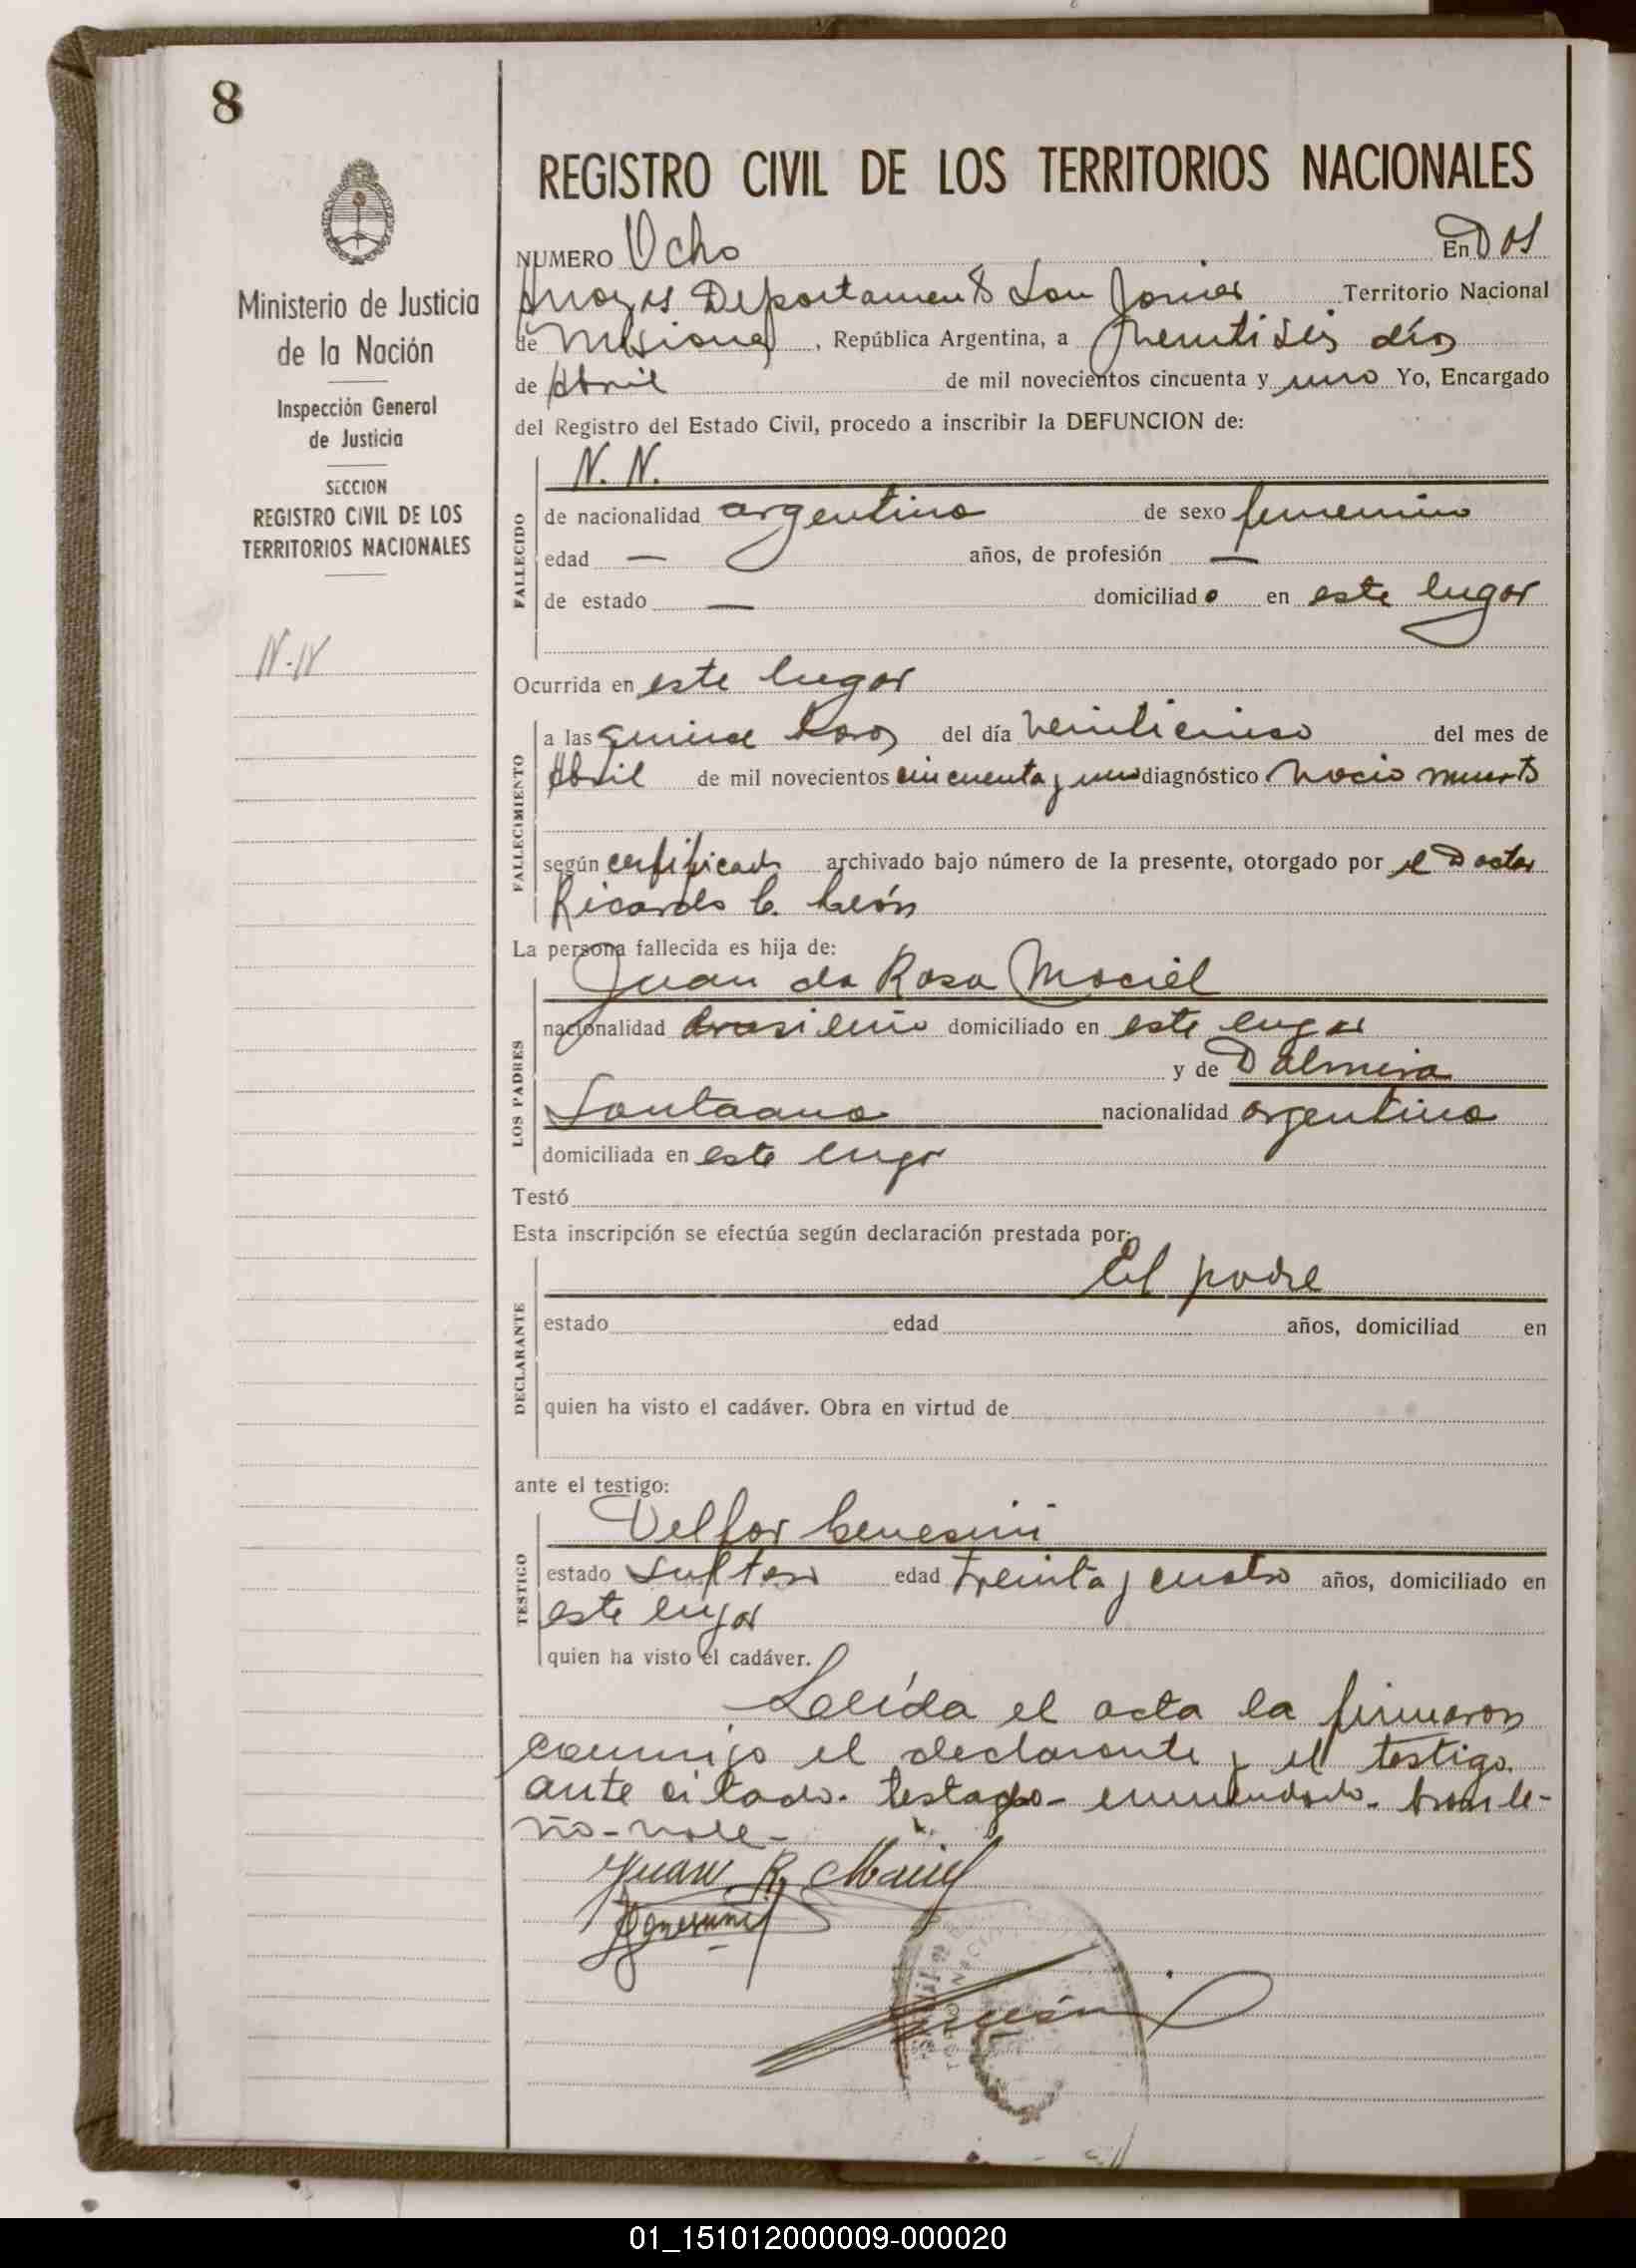 8
REGISTRO CIVIL DE LOS TERRITORIOS NACIONALES
Ministerio de Justicia
de la Nación
Inspección General
de Justicia
SECCION
REGISTRO CIVIL DE LOS
TERRITORIOS NACIONALES
N.N
NUMERO Ocho En Dos
Arroyos Departamento San Javier Territorio Nacional
de Misiones, República Argentina, a veintiseis días
de Abril de mil novecientos cincuenta y uno Yo, Encargado
del Registro del Estado Civil, procedo a inscribir la DEFUNCION de:
FALLECIDO
N. N.
de nacionalidad argentina de sexo femenino
edad — años, de profesión —
de estado — domiciliado en este lugar
Ocurrida en este lugar
FALLECIMIENTO
a las quince horas del día veinticinco del mes de
Abril de mil novecientos cincuenta y uno diagnóstico nacio muerto
según certificado archivado bajo número de la presente, otorgado por el Doctor
Ricardo C. León
La persona fallecida es hija de:
LOS PADRES
Juan da Rosa Maciel
nacionalidad brasileño domiciliado en este lugar
y de Dalmira
Santaana nacionalidad argentina
domiciliada en este lugar
Testó
Esta inscripción se efectúa según declaración prestada por:
DECLARANTE
El padre
estado edad años, domiciliad en
quien ha visto el cadáver. Obra en virtud de
ante el testigo:
TESTIGO
Velfor
estado soltero edad treinta y cuatro años, domiciliado en
este lugar
quien ha visto el cadáver.
Leída el acta la firmaron
conmigo el declarante y el testigo
ante citado. testado - enmendado - brasile-
ño - vale -
Juan R. Maciel
01_151012000009-000020